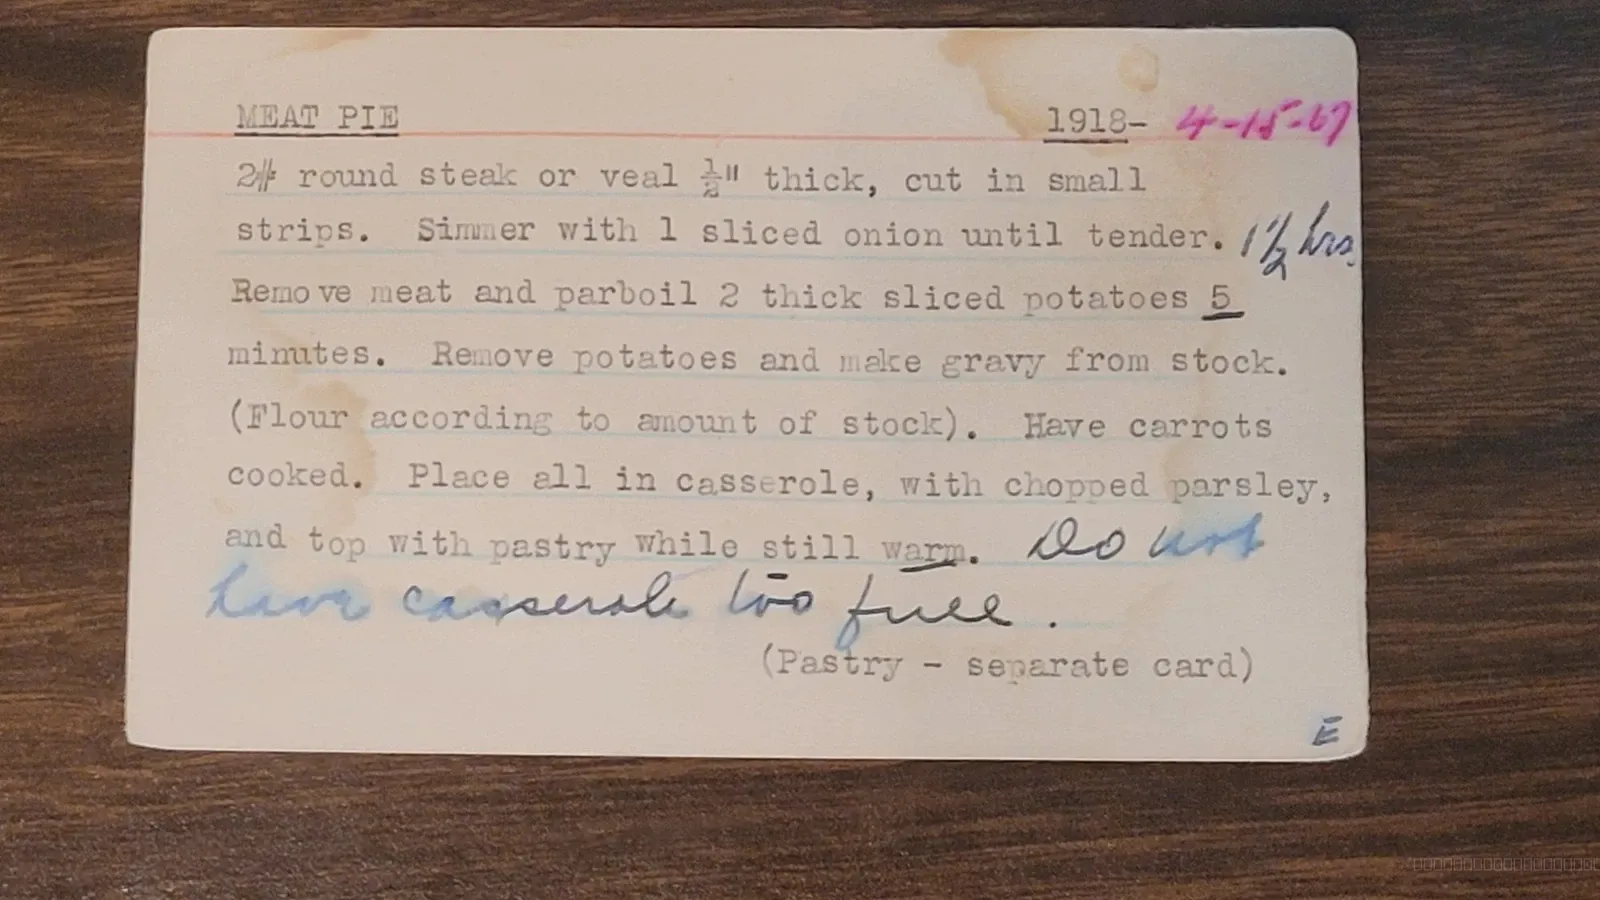 MEAT PIE 1918- 4-15-67
2# round steak or veal ½" thick, cut in small
strips. Simmer with 1 sliced onion until tender. 1½ hrs.
Remove meat and parboil 2 thick sliced potatoes 5
minutes. Remove potatoes and make gravy from stock.
(Flour according to amount of stock). Have carrots
cooked. Place all in casserole, with chopped parsley,
and top with pastry while still warm. Do not
have casserole too full.
(Pastry - separate card)
E